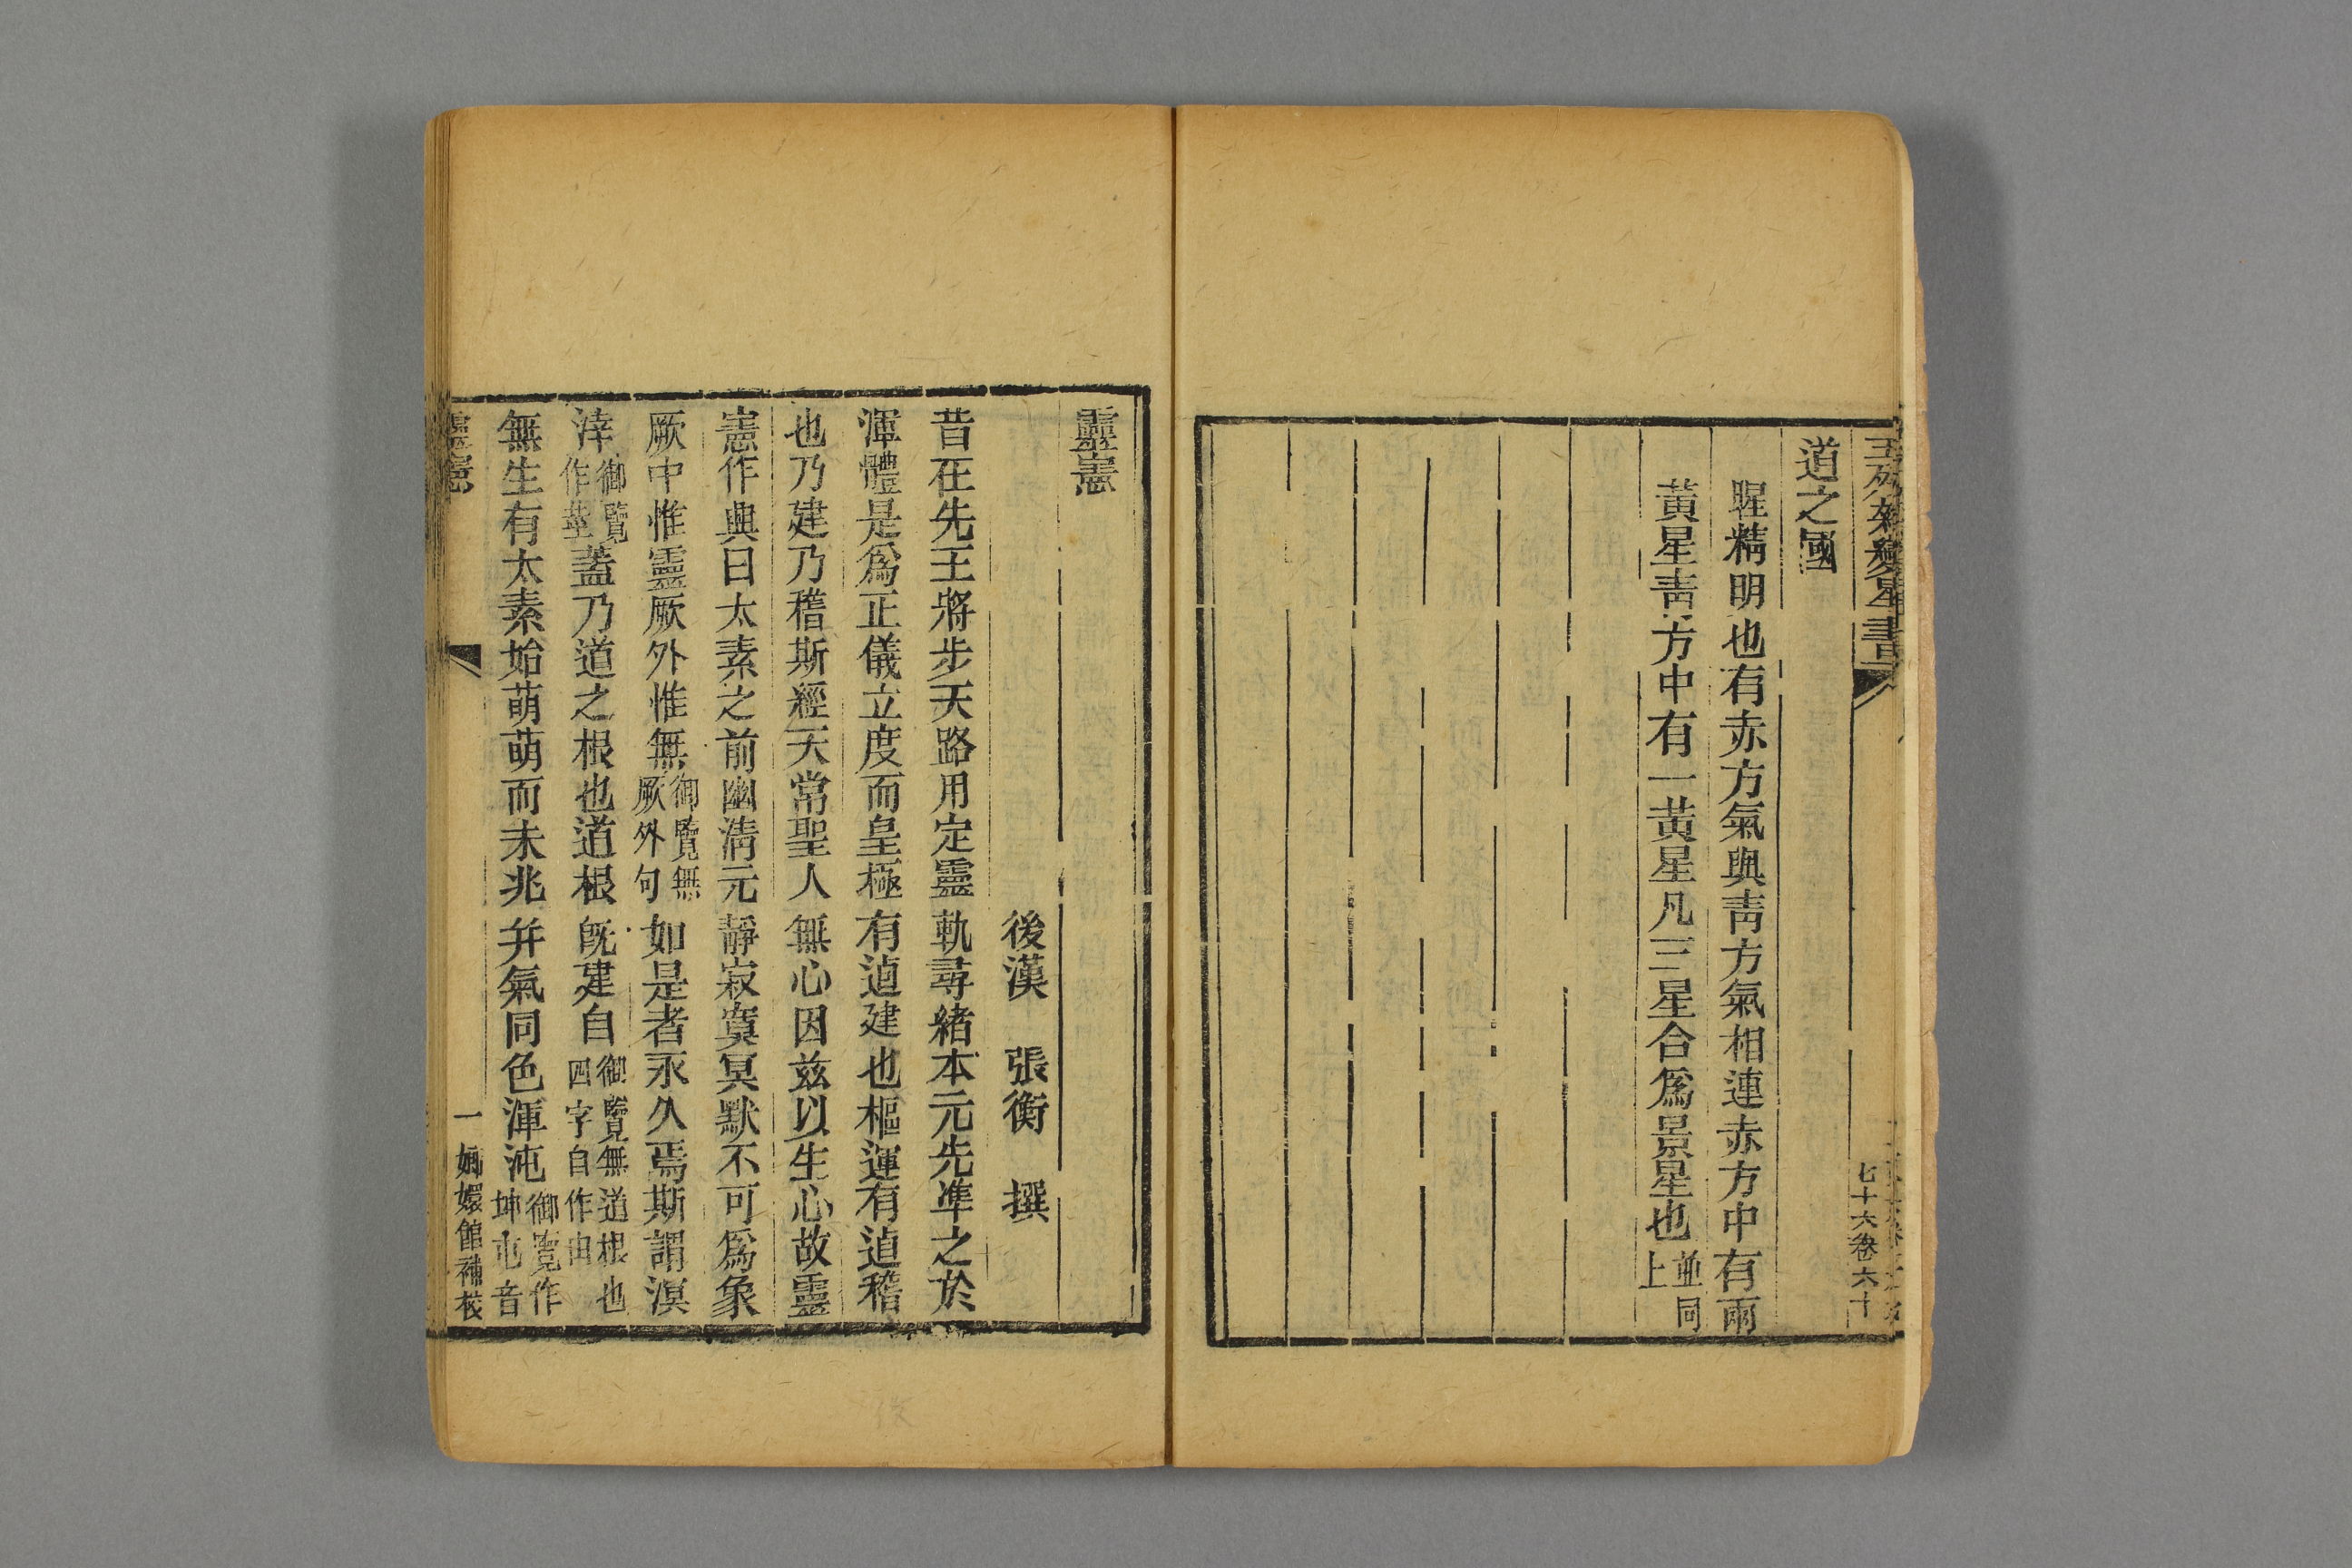 道之國
暒精明也有赤方氣與青方氣相連赤方中有兩
黃星青方中有一黃星凡三星合爲景星也並同上
七十六卷六十
靈憲
後漢 張衡 撰
昔在先王將步天路用定靈軌尋緖本元先準之於
渾體是爲正儀立度而皇極有逌建也樞運有逌稽
也乃建乃稽斯經天常聖人無心因茲以生心故靈
憲作興曰太素之前幽淸元靜寂寞冥默不可爲象
厥中惟靈厥外惟無御覽無厥外句如是者永久焉斯謂溟
涬御覽作莖蓋乃道之根也道根旣建自御覽無道根也四字自作由
無生有太素始萌萌而未兆并氣同色渾沌御覽作坤屯音
靈憲
一 嫏嬛館補校